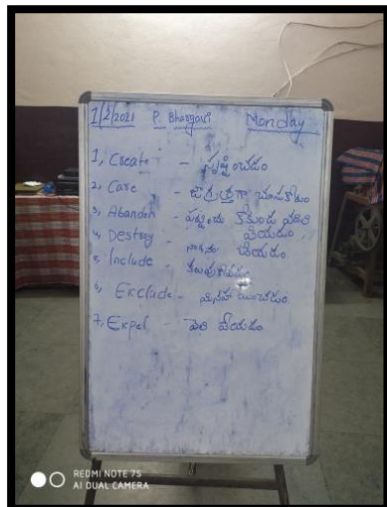 1/2/2021 P. Bhargavi Monday
1, Create - సృష్టించడం
2, Care - జాగ్రత్తగా చూసుకోవడం
3, Abandon - పట్టించు కోకుండ వదిలి వేయడం
4, Destroy నాశనం చేయడం
5. Include కలుపుకోవడం
6, Exclude - మినహాయించడం
7, Expel - వెలి వేయడం
REDMI NOTE 7S
AI DUAL CAMERA